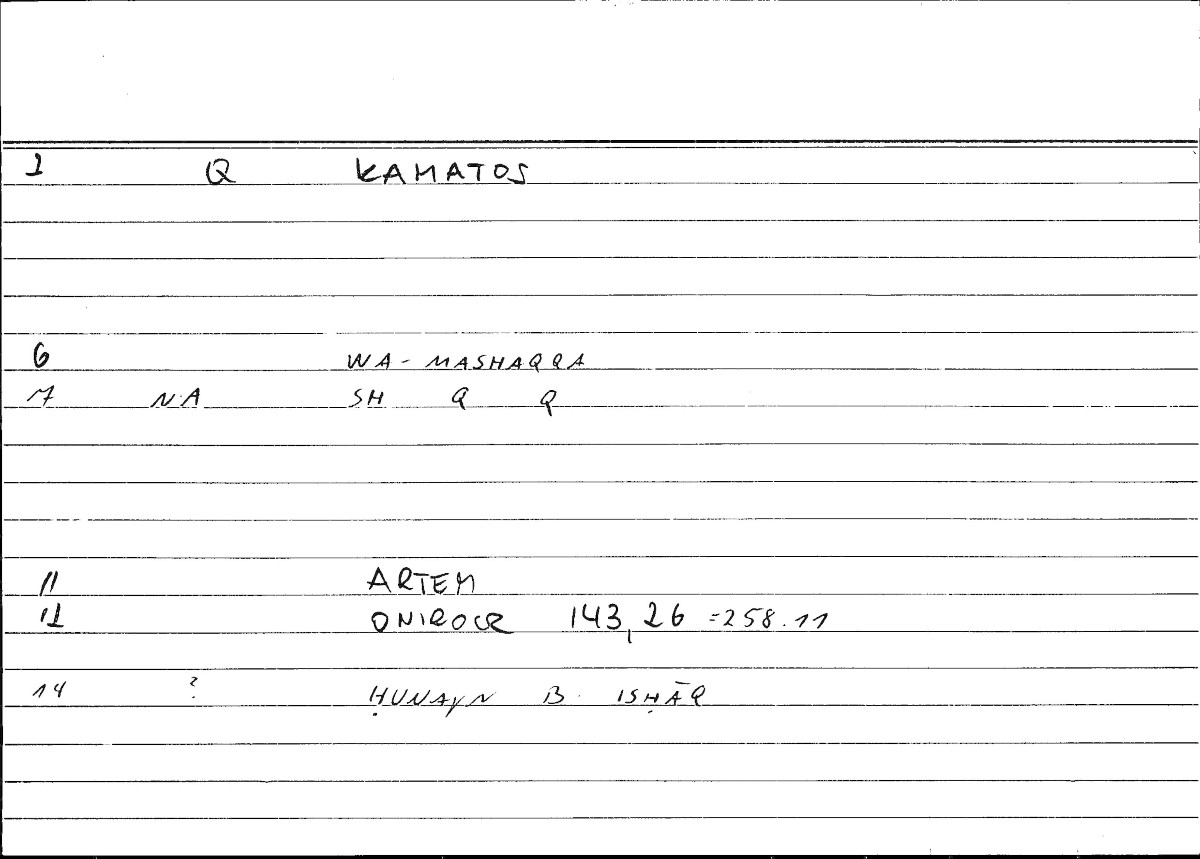 1 Q KAMATOS
6 WA-MASHAQQA
7 NA SH Q Q
11 ARTEM
12 ONIROCR 143,26 =258.11
14 ? ḤUNAYN B. ISḤĀQ